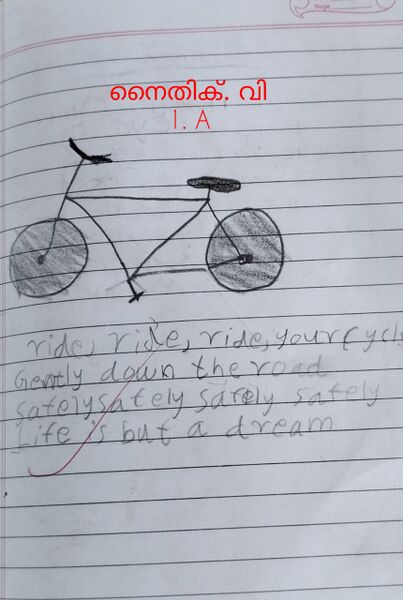 Page
നൈതിക്. വി
I. A
ride, ride, ride, your Cycle
Gently down the road
safelysafely safely safely
Life is but a dream